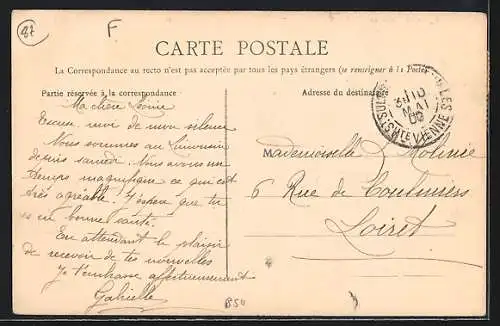 87
F
CARTE POSTALE
La Correspondance au recto n'est pas acceptée par tous les pays étrangers (se renseigner à la Poste
Partie réservée à la correspondance
Adresse du destinataire
Ma chère Louise
Excuse moi de mon silence
Nous sommes au
depuis samedi. Nous avons un
temps magnifique ce qui est
très agréable. J'espère que tu
es en bonne santé.
En attendant le plaisir
de recevoir de tes nouvelles
Je t'embrasse affectueusement
Gabrielle
Mademoiselle L. Molinié
6 Rue de Coulmiers
Loiret
LES
MAI
09
HTE VIENNE
B50